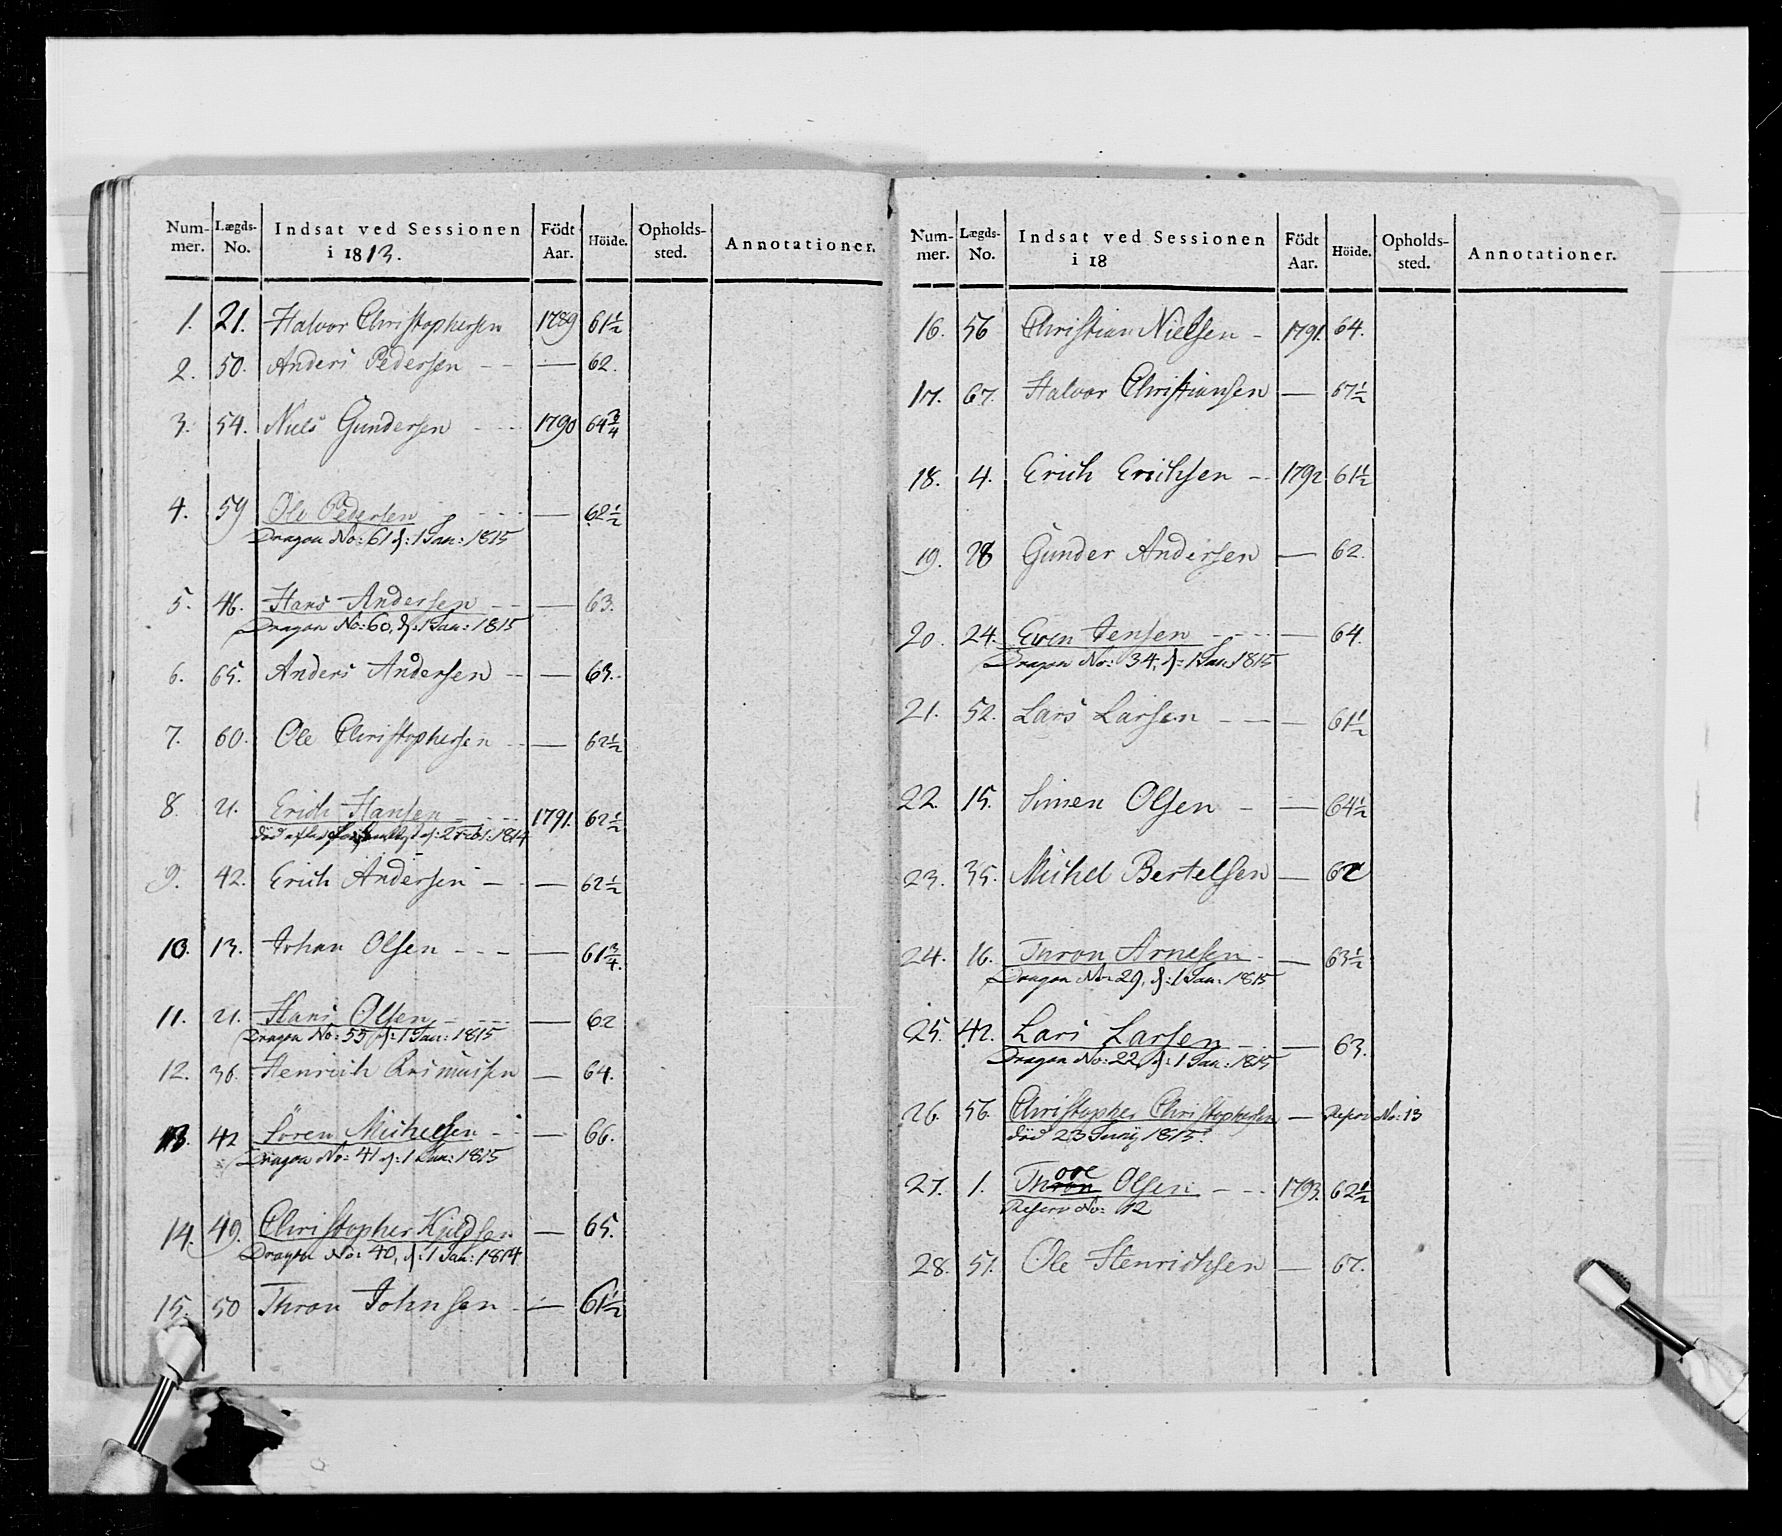 Num- Lægds- Indsat ved Sessionen Födt Höide. Opholds- Annotationer.
mer. No. i 1813. Aar. sted.
1. 21. Halvor Christophersen 1789 61 1/2
2. 50. Anders Pedersen - - — 62.
3. 54. Niels Gundersen - - - 1790 64 3/4
4. 59 Ole Pedersen - - - — 62 1/2
Dragon No: 61 d: 1 Jan: 1815
5. 46. Hans Andersen - - — 63.
Dragon No: 60, d: 1 Jan: 1815
6. 65. Anders Andersen - - — 63.
7. 60. Ole Christophersen - - — 62 1/2
8. 21. Erich Hansen - - - 1791. 62 1/2
död 1814
9. 42. Erich Andersen - - — 62 1/2
10. 13. Johan Olsen - - - — 61 3/4.
11. 21. Hans Olsen - - - — 62
Dragon No: 55 d: 1 Jan: 1815
12. 36. Henrich Rasmussen — 64.
13. 42 Sören Michelsen - - — 66.
Dragon No: 41 d: 1 Jan: 1815
14. 49. Christopher Kjeldsen — 65.
Dragon No: 40, d: 1 Jan: 1814
15. 50 Thron Johnsen - — 61 1/2
Num- Lægds- Indsat ved Sessionen Födt Höide. Opholds- Annotationer.
mer. No. i 18 Aar. sted.
16. 56 Christian Nielsen - 1791. 64.
17. 67. Halvor Christiansen — 67 1/2
18. 4. Erich Erichsen - - 1792 61 1/2
19. 28 Gunder Andersen — 62.
20. 24. Even Jensen - - - — 64.
Dragon No: 34, d: 1 Jan: 1815
21. 52. Lars Larsen - - - — 61 1/2
22. 15. Simen Olsen - — 64 1/2
23. 35. Michel Bertelsen — 62
24. 16. Thron Arnesen - — 63 1/2
Dragon No: 29, d: 1 Jan: 1815
25. 42. Lars Larsen - - — 63.
Dragon No: 22, d: 1 Jan: 1815
26. 56. Christopher Christophersen — Reserv No: 13
död 23 Junij 1815.
27. 1. Thore Olsen - - - 1793. 62 1/2
Reserv No: 12
28. 51. Ole Henrichsen — 67.